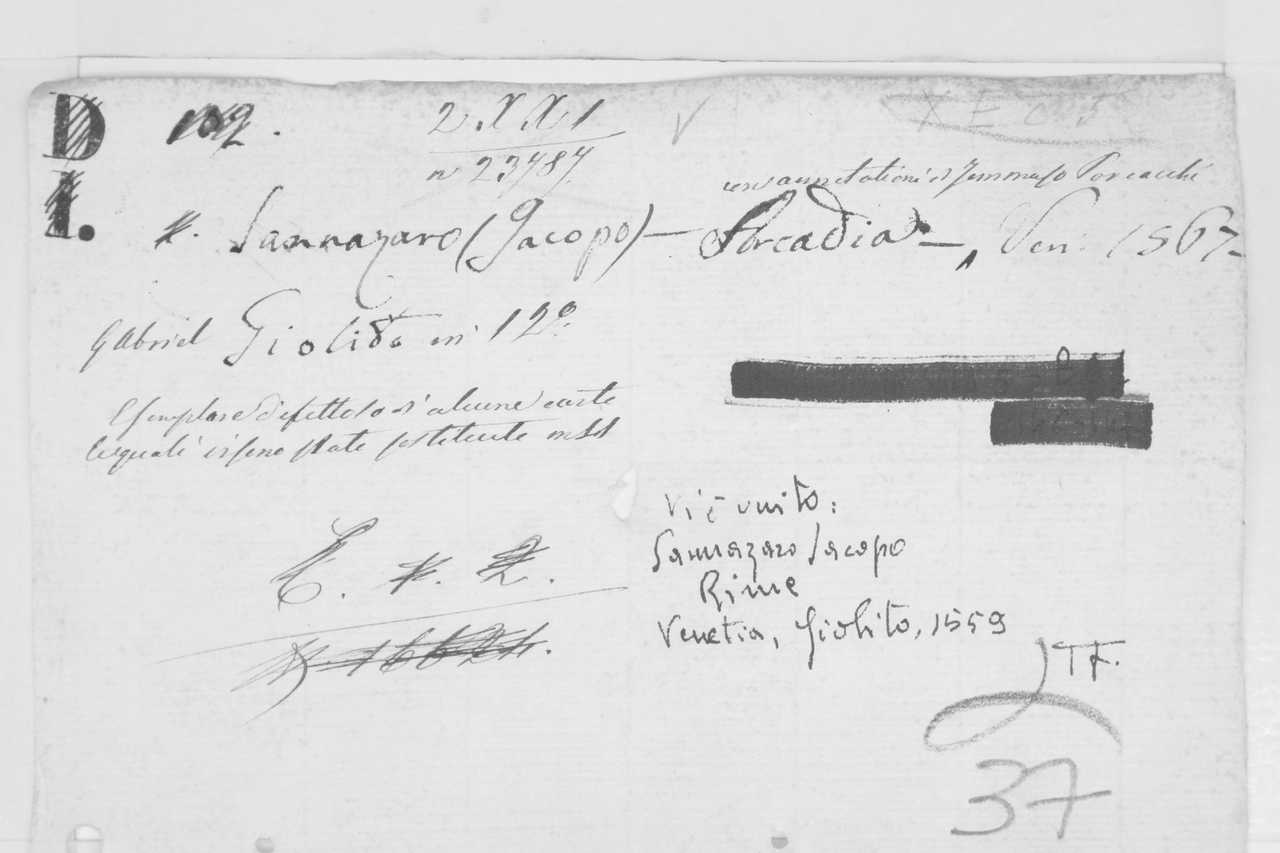 D 102.
2.X.X1
n 23787.
X E C I
con annotationi di Tommaso Porcacchi
1.
*. Sannazaro (Jacopo) — Arcadia —, Ven: 1567-
Gabriel Giolito in 12º.
Esemplare difettoso di alcune carte
le quali vi sono state sostituite mss
Vi è unito:
Sannazaro Jacopo
Rime
Venetia, Giolito, 1559
E. *. 2.
16624.
TF.
37